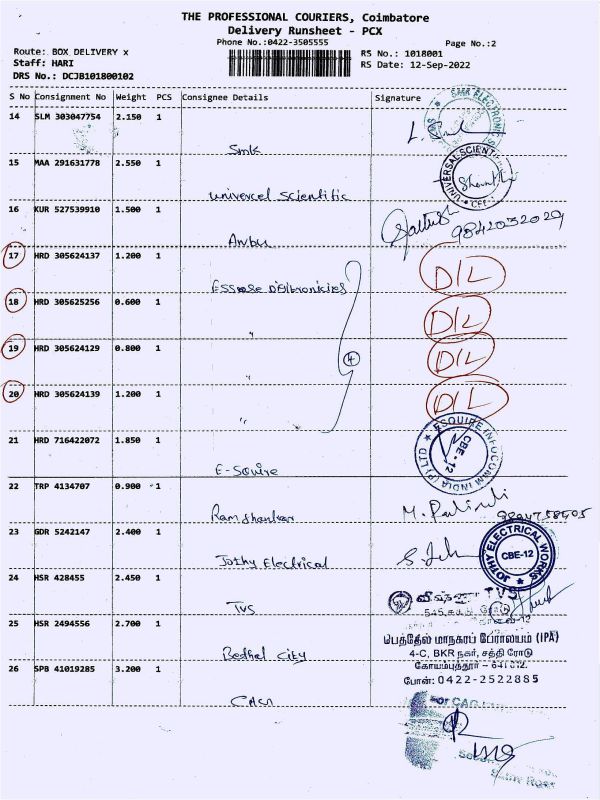 THE PROFESSIONAL COURIERS, Coimbatore
Delivery Runsheet - PCX
Phone No.:0422-3505555
Page No.:2
Route: BOX DELIVERY x
RS No.: 1018001
Staff: HARI
RS Date: 12-Sep-2022
DRS No.: DCJB101800102
S No Consignment No Weight PCS Consignee Details Signature
14 SLM 303047754 2.150 1
Smk
15 MAA 291631778 2.550 1
UNIVERSAL SCIENTIFIC
Univercel Scientific
16 KUR 527539910 1.500 1
9842032029
Anbu
17 HRD 305624137 1.200 1 D/L
18 HRD 305625256 0.600 1 D/L
"
19 HRD 305624129 0.800 1 D/L
4
"
20 HRD 305624139 1.200 1 D/L
"
21 HRD 716422072 1.850 1
ESQUIRE INFOCOMM INDIA (P) LTD
CBE - 12
E-Squire
22 TRP 4134707 0.900 1
Ramshankar
23 GDR 5242147 2.400 1
JOTHY ELECTRICAL WORKS
CBE-12
Jothy Electrical
24 HSR 428455 2.450 1
TVS
TVS
25 HSR 2494556 2.700 1
பெத்தேல் மாநகரப் பேராலயம் (IPA)
4-C, BKR நகர், சத்தி ரோடு
கோயம்புத்தூர் – 641012.
போன்: 0422-2522885
Bethel City
26 SPB 41019285 3.200 1